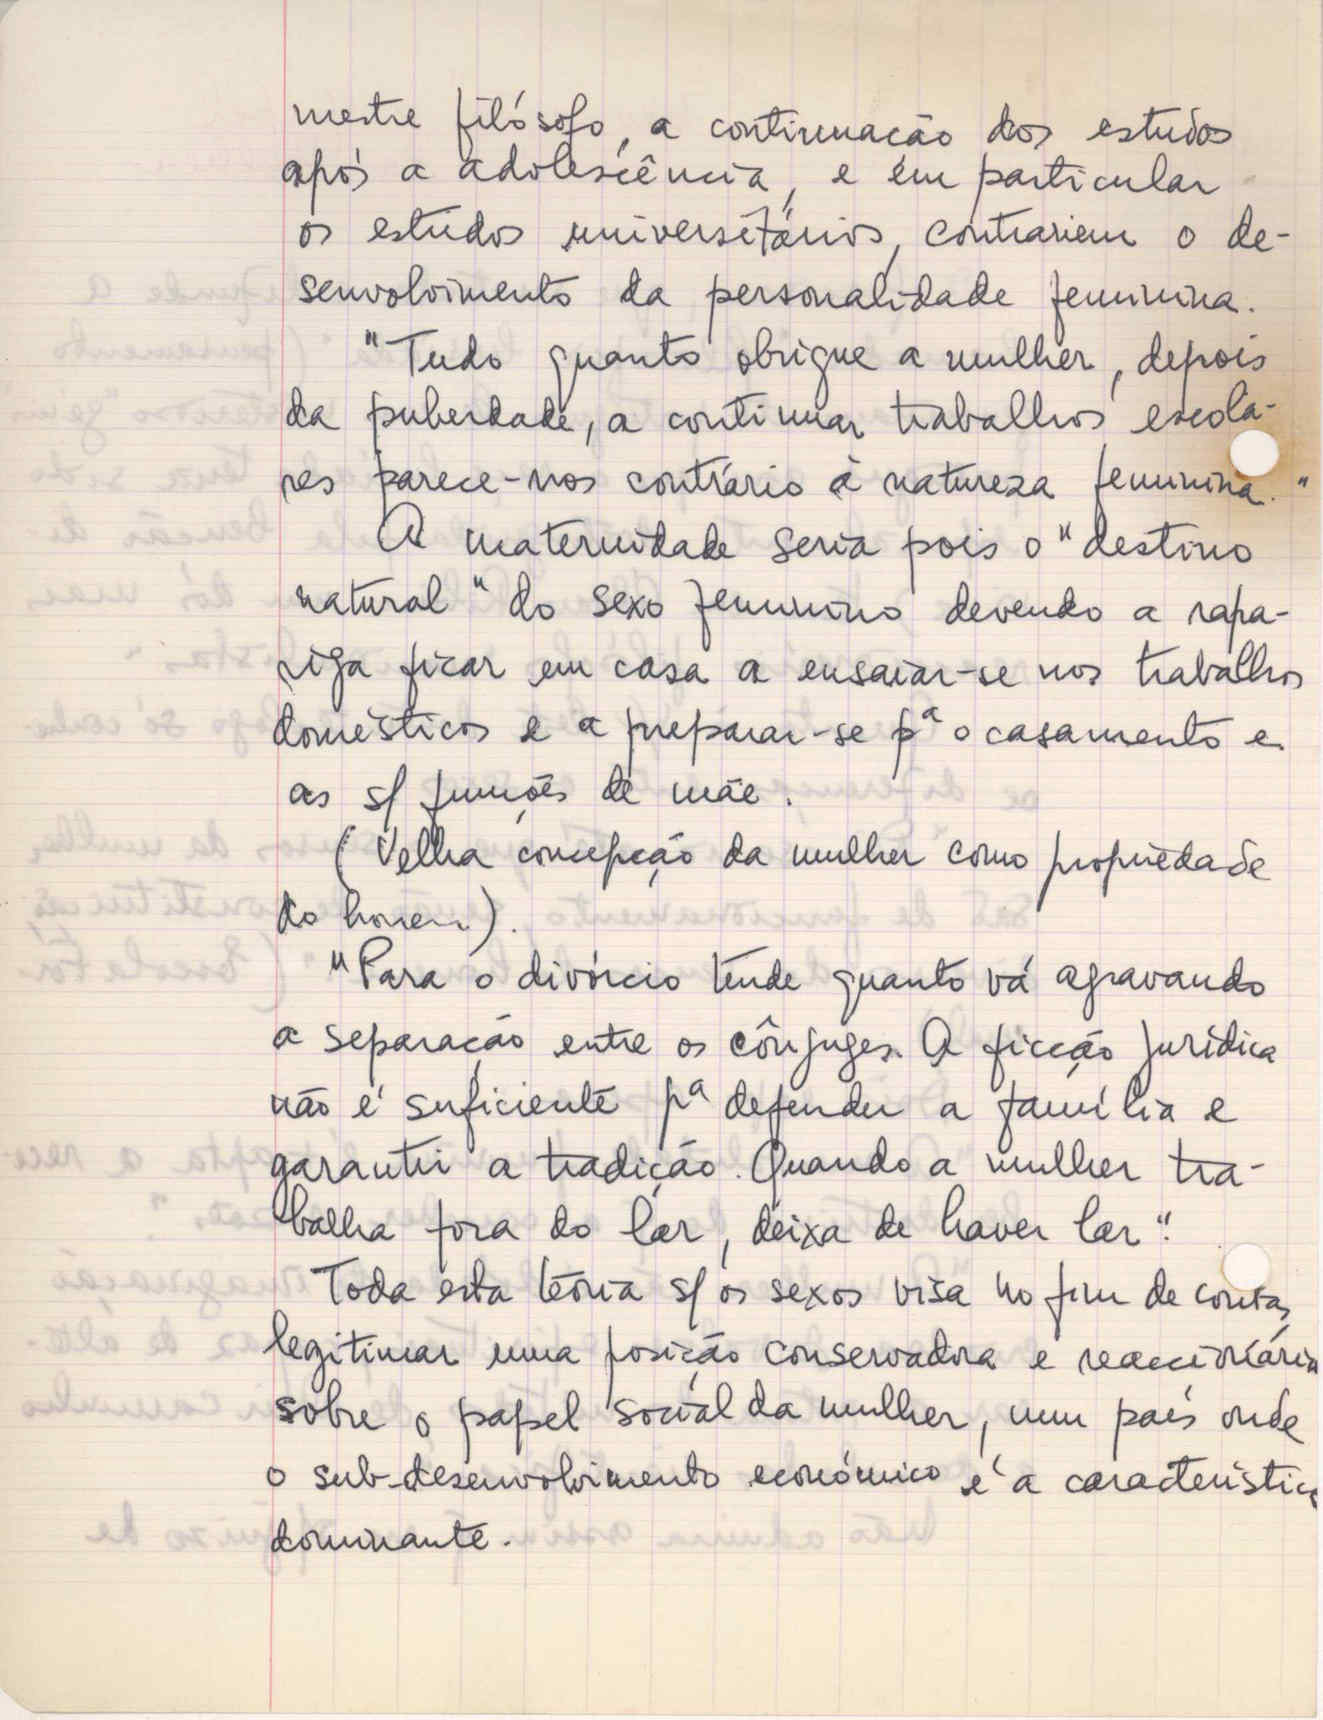 mestre filósofo, a continuação dos estudos
após a adolescência, e em particular
os estudos universitários, contrariem o de-
senvolvimento da personalidade feminina.
"Tudo quanto obrigue a mulher, depois
da puberdade, a continuar trabalhos escola-
res parece-nos contrário à natureza feminina."
A maternidade seria pois o "destino
natural" do sexo feminino devendo a rapa-
riga ficar em casa a ensaiar-se nos trabalhos
domésticos e a preparar-se pª o casamento e
as s/ funções de mãe.
(Velha concepção da mulher como propriedade
do homem).
"Para o divórcio tende quanto vá agravando
a separação entre os cônjuges. A ficção jurídica
não é suficiente pª defender a família e
garantir a tradição. Quando a mulher tra-
balha fora do lar, deixa de haver lar".
Toda esta teoria s/ os sexos visa no fim de contas,
legitimar uma posição conservadora e reaccionária
sobre o papel social da mulher, num país onde
o sub-desenvolvimento económico é a característica
dominante.